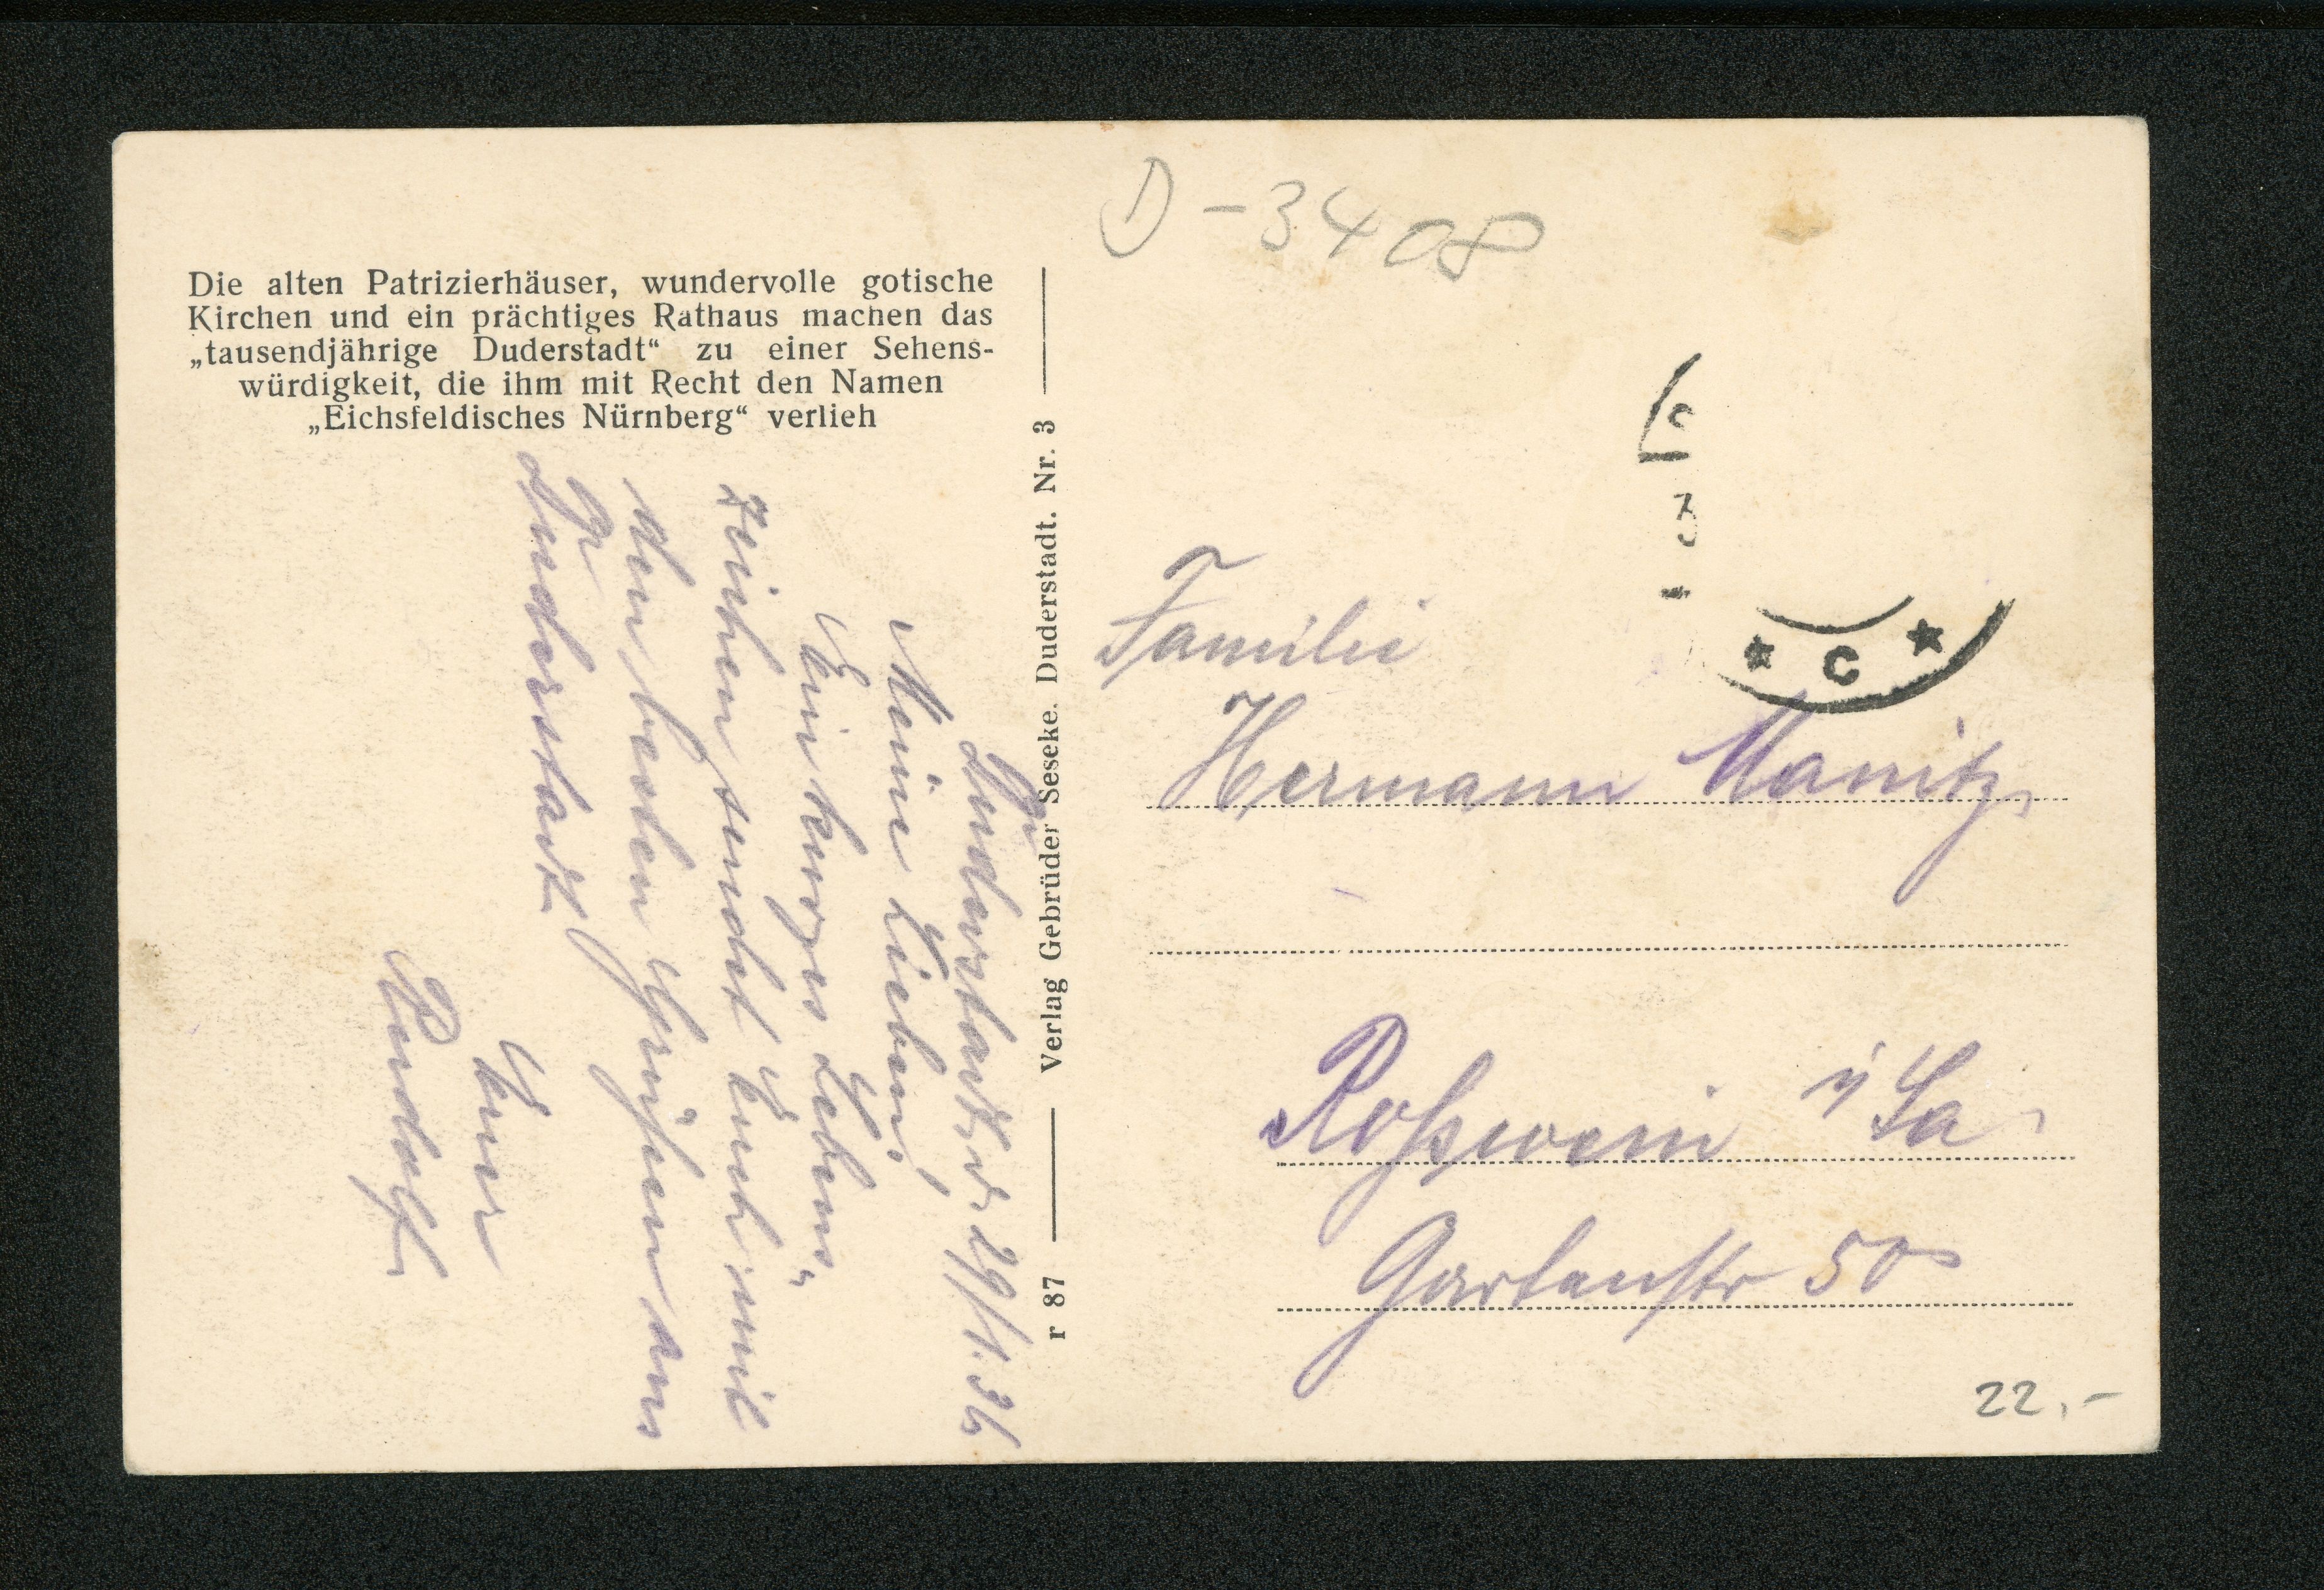 Die alten Patrizierhäuser, wundervolle gotische
Kirchen und ein prächtiges Rathaus machen das
„tausendjährige Duderstadt“ zu einer Sehens-
würdigkeit, die ihm mit Recht den Namen
„Eichsfeldisches Nürnberg“ verlieh
Duderstadt, d. 29/1. 36
Meine Lieben!
Ein kurzes Lebens„
zeichen sendet Euch mit
den besten Grüßen aus
Duderstadt
Euer
Rudolf
r 87 Verlag Gebrüder Seseke. Duderstadt. Nr. 3
D-3408
C
Familie
Hermann Manitz,
Roßwein i/Sa.
Gartenstr 50
22,-